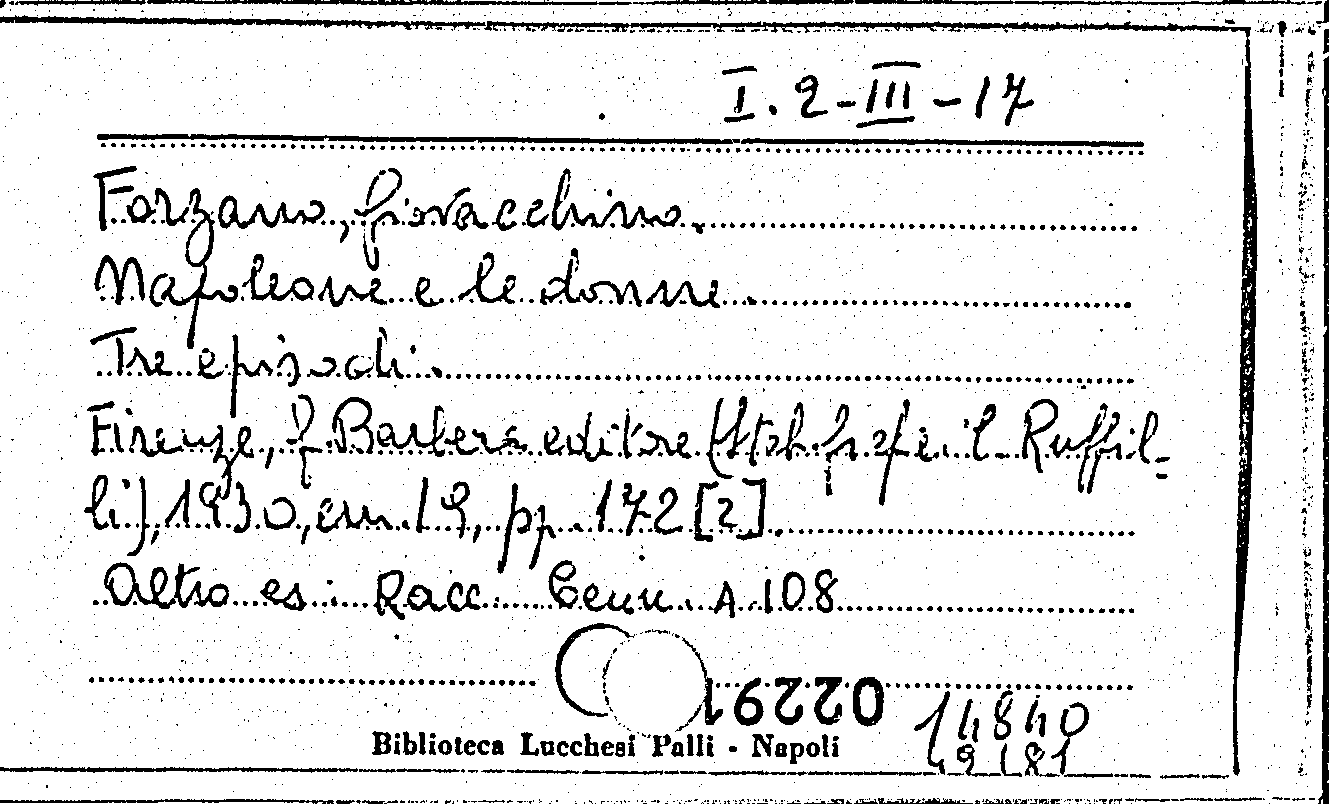 I. 2-III-17
Forzano, Giovacchino.
Napoleone e le donne.
Tre episodi.
Firenze, G. Barbera editore (Stab. graf. Ruffil-
li), 1930, cm. 19, pp. 172 [2].
Altro es: Racc. Cenn. A 108
02291
Biblioteca Lucchesi Palli - Napoli
14840